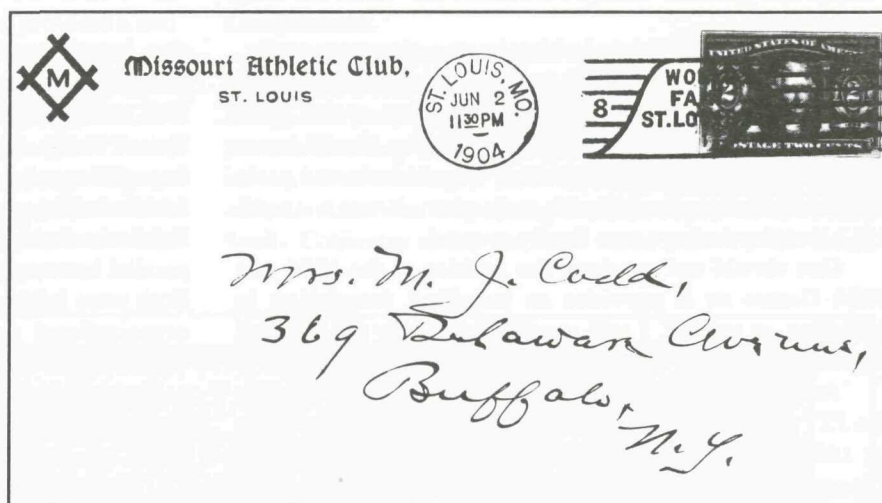 M
Missouri Athletic Club,
ST. LOUIS
ST. LOUIS, MO.
JUN 2
11 30 PM
1904
8
WO
FA
ST. LO
UNITED STATES OF AMERICA
2 2
POSTAGE TWO CENTS
Mrs. M. J. Codd,
369 Delaware Avenue,
Buffalo,
N.Y.